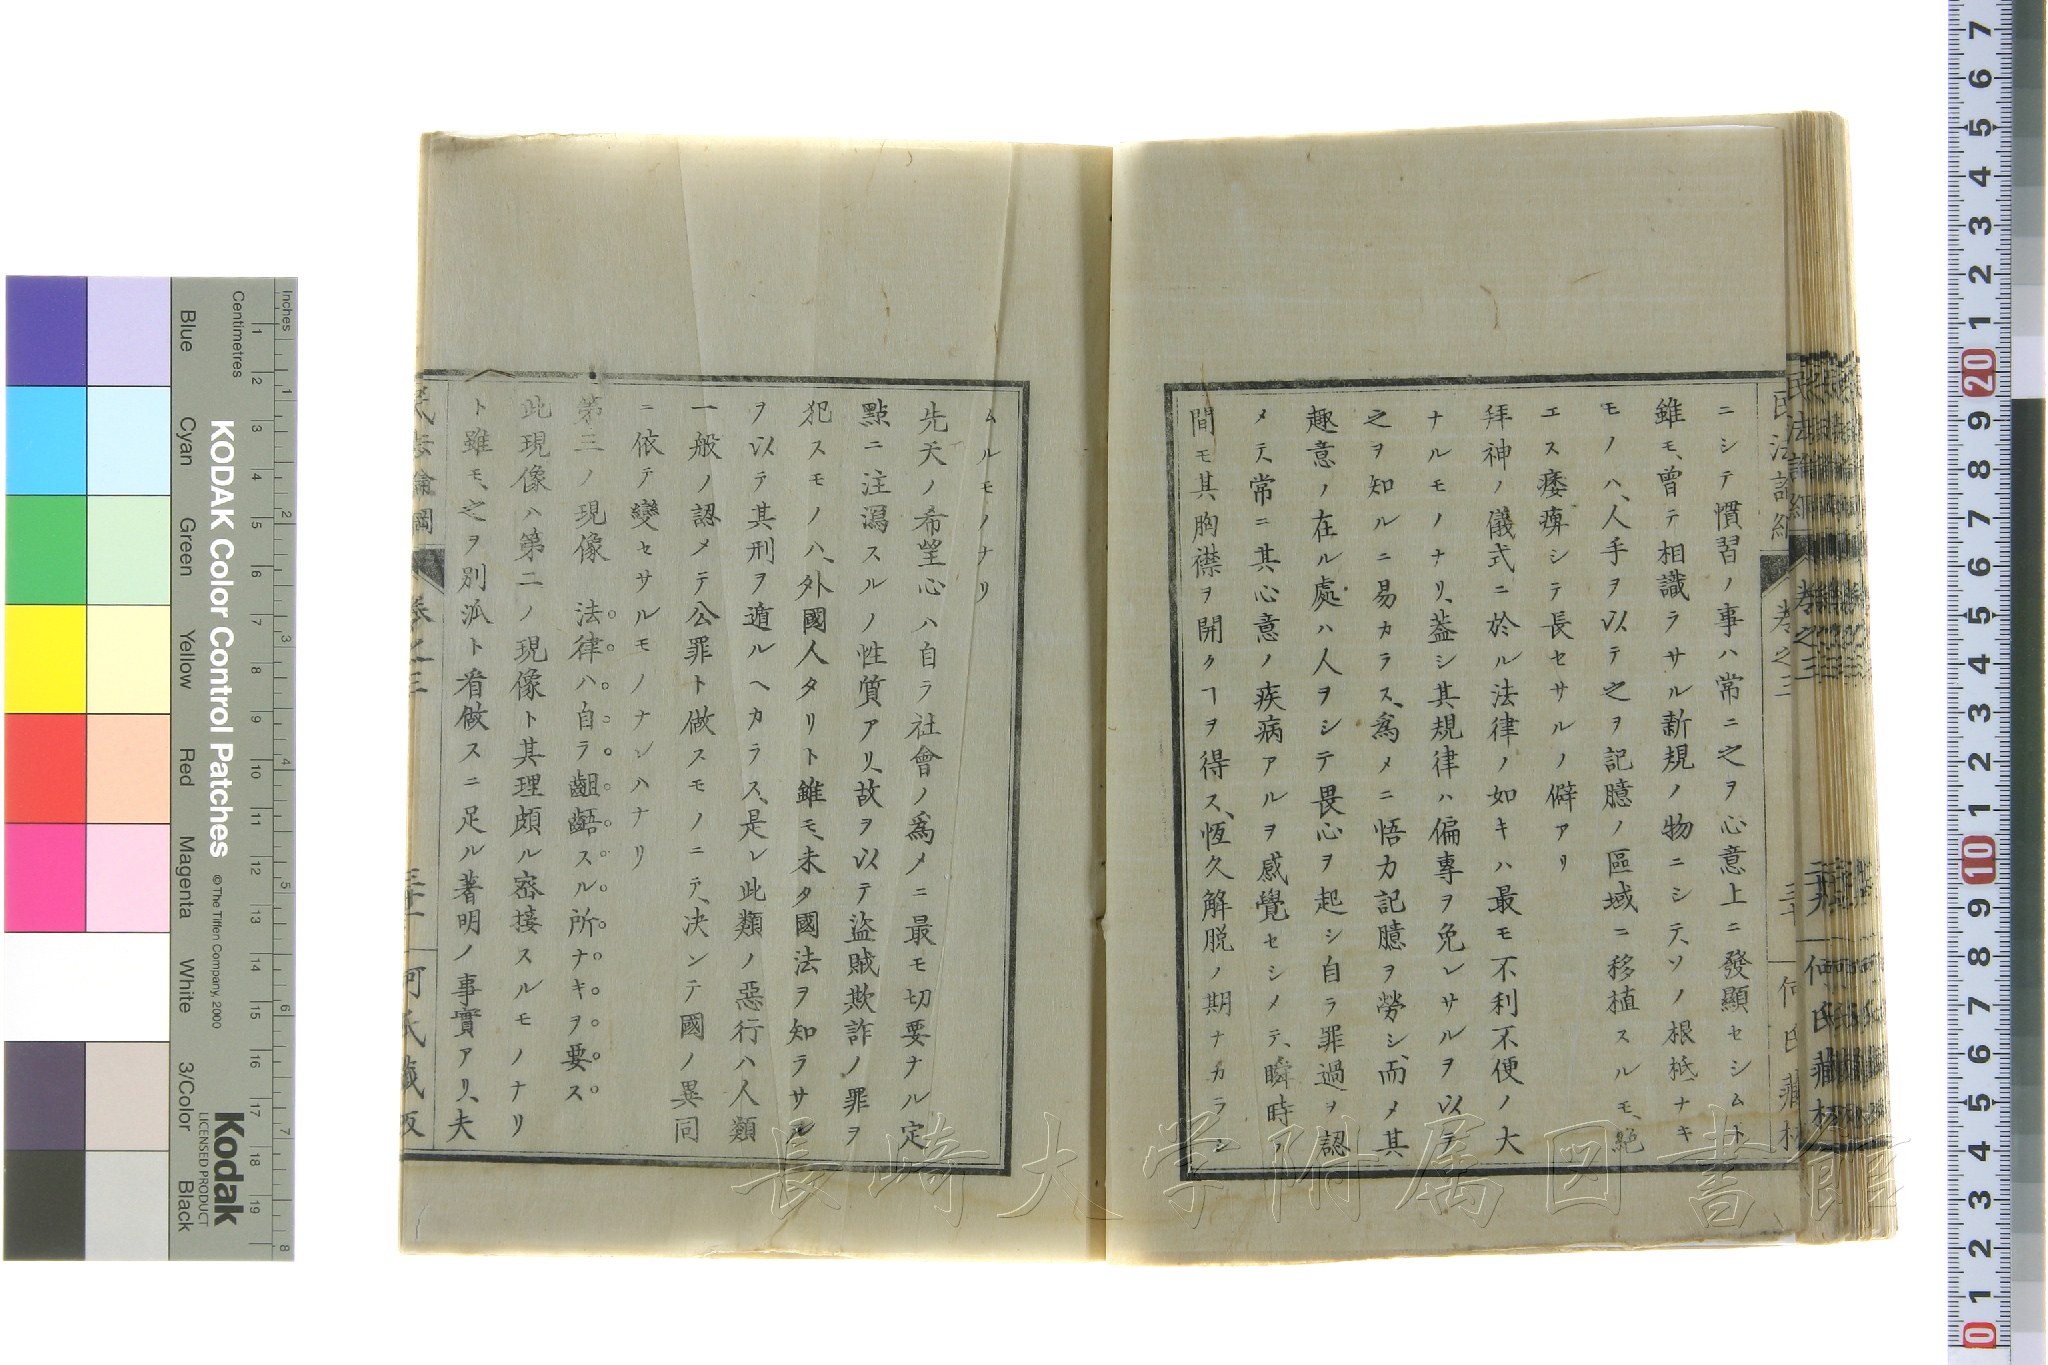 ニシテ慣習ノ事ハ常ニ之ヲ心意上ニ發顯セシムト
雖モ、曾テ相識ラサル新規ノ物ニシテ、ソノ根柢ナキ
モノハ、人手ヲ以テ之ヲ記臆ノ區域ニ移植スルモ、絶
エス痿痺シテ長セサルノ僻アリ
拜神ノ儀式ニ於ル法律ノ如キハ最モ不利不便ノ大
ナルモノナリ、葢シ其規律ハ偏專ヲ免レサルヲ以テ
之ヲ知ルニ易カラス、爲メニ悟力記臆ヲ勞シ、而メ其
趣意ノ在ル處ハ人ヲシテ畏心ヲ起シ自ラ罪過ヲ認
メテ、常ニ其心意ノ疾病アルヲ感覺セシメテ、瞬時ノ
間モ其胸襟ヲ開クヿヲ得ス、恆久解脱ノ期ナカラシ
民法論綱
卷之三
三十
何氏藏板
ムルモノナリ
先天ノ希望心ハ自ラ社會ノ爲メニ最モ切要ナル定
點ニ注瀉スルノ性質アリ、故ヲ以テ盜賊欺詐ノ罪ヲ
犯スモノハ、外國人タリト雖モ、未タ國法ヲ知ラサル
ヲ以テ其刑ヲ遁ルヘカラス、是レ此類ノ惡行ハ人類
一般ノ認メテ公罪ト做スモノニテ、决シテ國ノ異同
ニ依テ變セサルモノナレハナリ
第三ノ現像　法律ハ自ラ齟齬スル所ナキヲ要ス
此現像ハ第二ノ現像ト其理頗ル密接スルモノナリ
ト雖モ、之ヲ別派ト看做スニ足ル著明ノ事實アリ、夫
民法論綱
卷之三
三十一
何氏藏板
長崎大学附属図書館
Inches
Centimetres
KODAK Color Control Patches
© The Tiffen Company, 2000
Kodak
LICENSED PRODUCT
Blue
Cyan
Green
Yellow
Red
Magenta
White
3/Color
Black